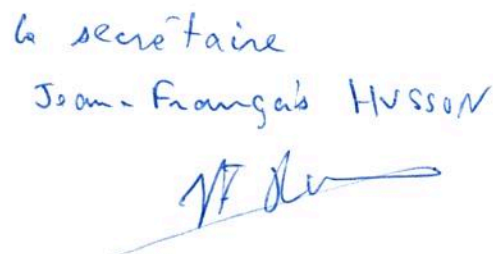 le secrétaire
Jean-François HUSSON